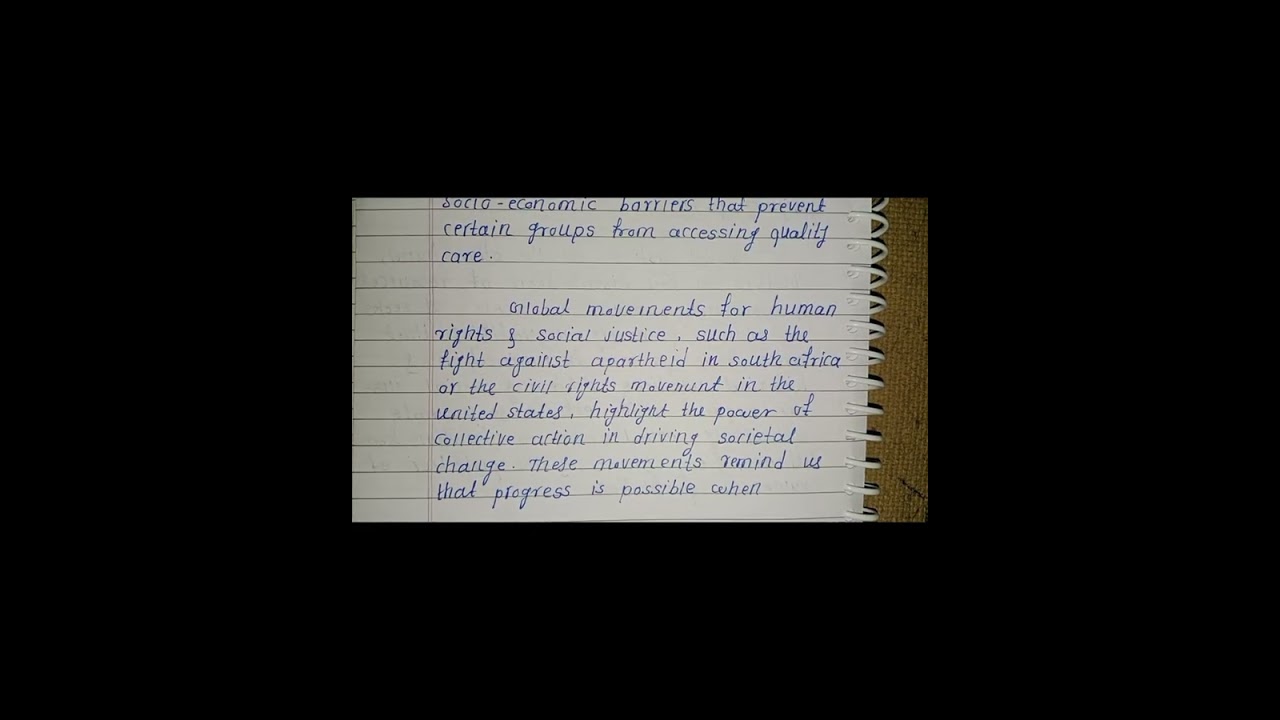 socio-economic barriers that prevent
certain groups from accessing quality
care.
Global movements for human
rights & social justice, such as the
fight against apartheid in south africa
or the civil rights movement in the
united states, highlight the power of
collective action in driving societal
change. These movements remind us
that progress is possible when